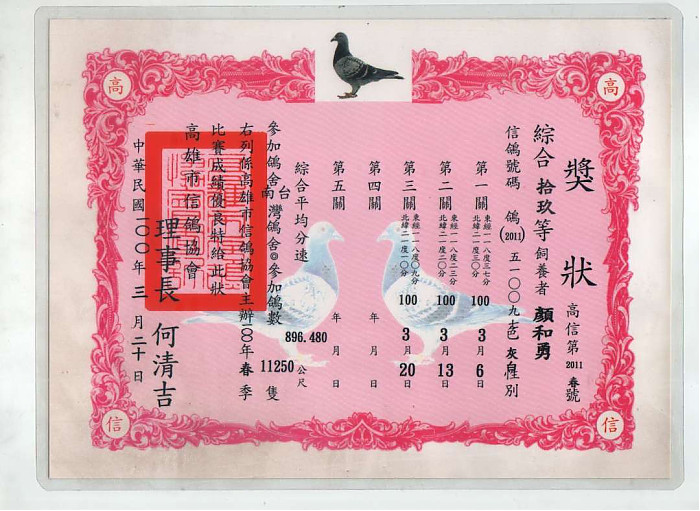 高
高
獎狀
高信第2011春號
綜合拾玖等飼養者顏和勇
信鴿號碼 鴿(2011)五一〇〇九七色灰性別
第一關 東經一一八度三七分 北緯二一度三〇分 100年3月6日
第二關 東經一一八度二三分 北緯二一度二〇分 100年3月13日
第三關 東經一一八度〇九分 北緯二一度一〇分 100年3月20日
第四關 年 月 日
第五關 年 月 日
綜合平均分速 896.480 公尺
參加鴿舍南台灣鴿舍◎參加鴿數 11250 隻
右列係高雄市信鴿協會主辦100年春季
比賽成績優良特給此狀
高雄市信鴿協會
理事長 何清吉
中華民國一〇〇年三月二十日
信
信